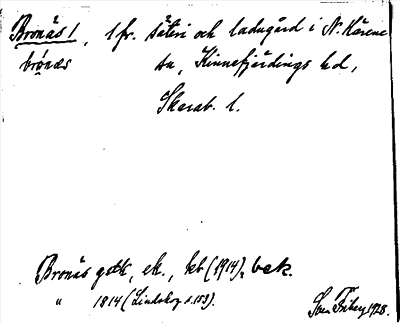 Bronäs 1, 1 fr. säteri och ladugård i N. Kärene
brónæs sn, Kinnefjärdings hd,
Skarab. l.
Bronäs gstk, ek., kb (1914), bek.
" 1814 (Lindskog s. 153).
Sven Friberg 1928.